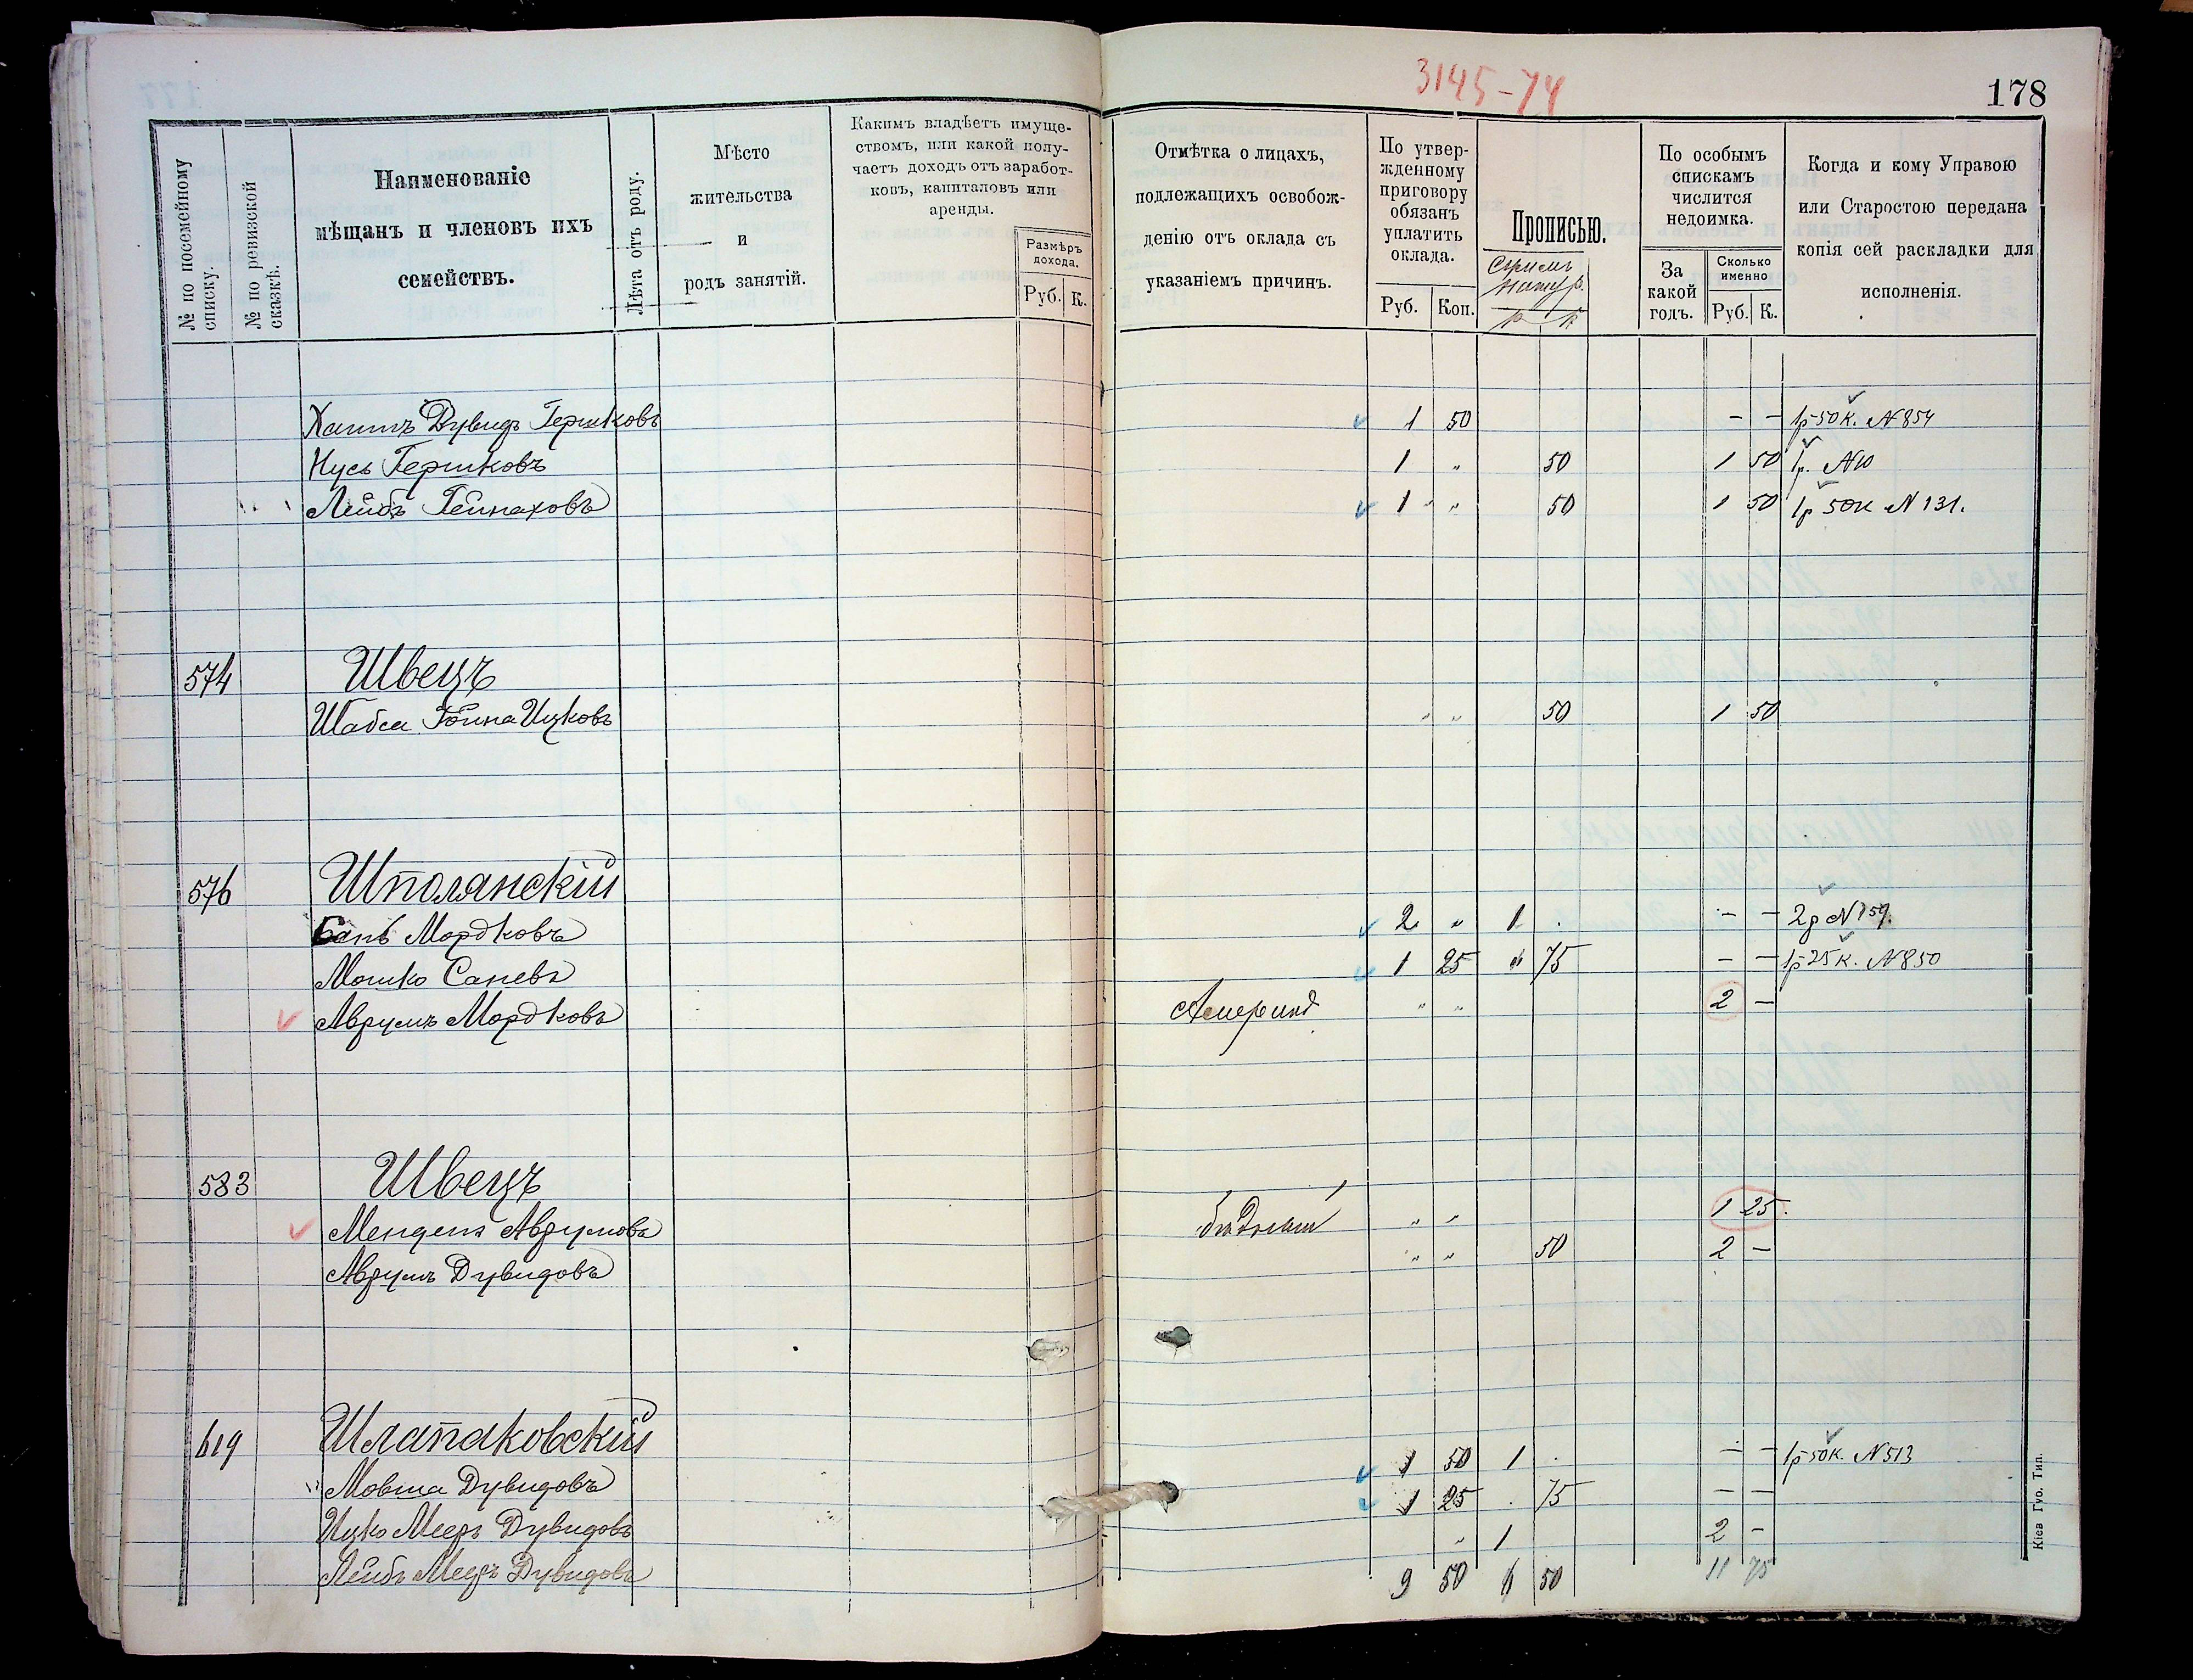 3145-74
178
№ по посемейному списку.
№ по ревизской сказкѣ.
Наименованіе
мѣщанъ и членовъ ихъ
семействъ.
Лѣта отъ роду.
Мѣсто
жительства
и
родъ занятій.
Какимъ владѣетъ имуще-
ствомъ, или какой полу-
чаетъ доходъ отъ заработ-
ковъ, капиталовъ или
аренды.
Размѣръ
дохода.
Руб. К.
Отмѣтка о лицахъ,
подлежащихъ освобож-
денію отъ оклада съ
указаніемъ причинъ.
По утвер-
жденному
приговору
обязанъ
уплатить
оклада.
Руб. Коп.
Прописью.
р к
По особымъ
спискамъ
числится
недоимка.
За
какой
годъ.
Сколько
именно
Руб. К.
Когда и кому Управою
или Старостою передана
копія сей раскладки для
исполненія.
Хаимъ Дувидъ Гершковъ 1 50 – – 1р 50к. N 854
Нусь Гершковъ 1 " 50 1 50 1р. N10
Лейбъ Пейнаховъ 1 " " 50 1 50 1р 50к N 131.
574 Швецъ
Шабса Іойна Ицковъ " " 50 1 50
576 Шполянскій
Сапѣ Мордковъ 2 " 1 . – – 2р N 159.
Мошко Сапевъ 1 25 " 75 – – 1р 25к. N 850
Аврумъ Мордковъ " " 2 –
583 Швецъ
Мендель Аврумовъ " " 1 25.
Аврумъ Дувидовъ " " 50 2 –
619 Шлапаковскій
Мовша Дувидовъ 1 50 1 . – – 1р 50к. N 513
Ицко Мееръ Дувидовъ 1 25 . 75 – –
Лейбъ Мееръ Дувидовъ " 1 2 –
9 50 6 50 11 75
Кіев Губ. Тип.